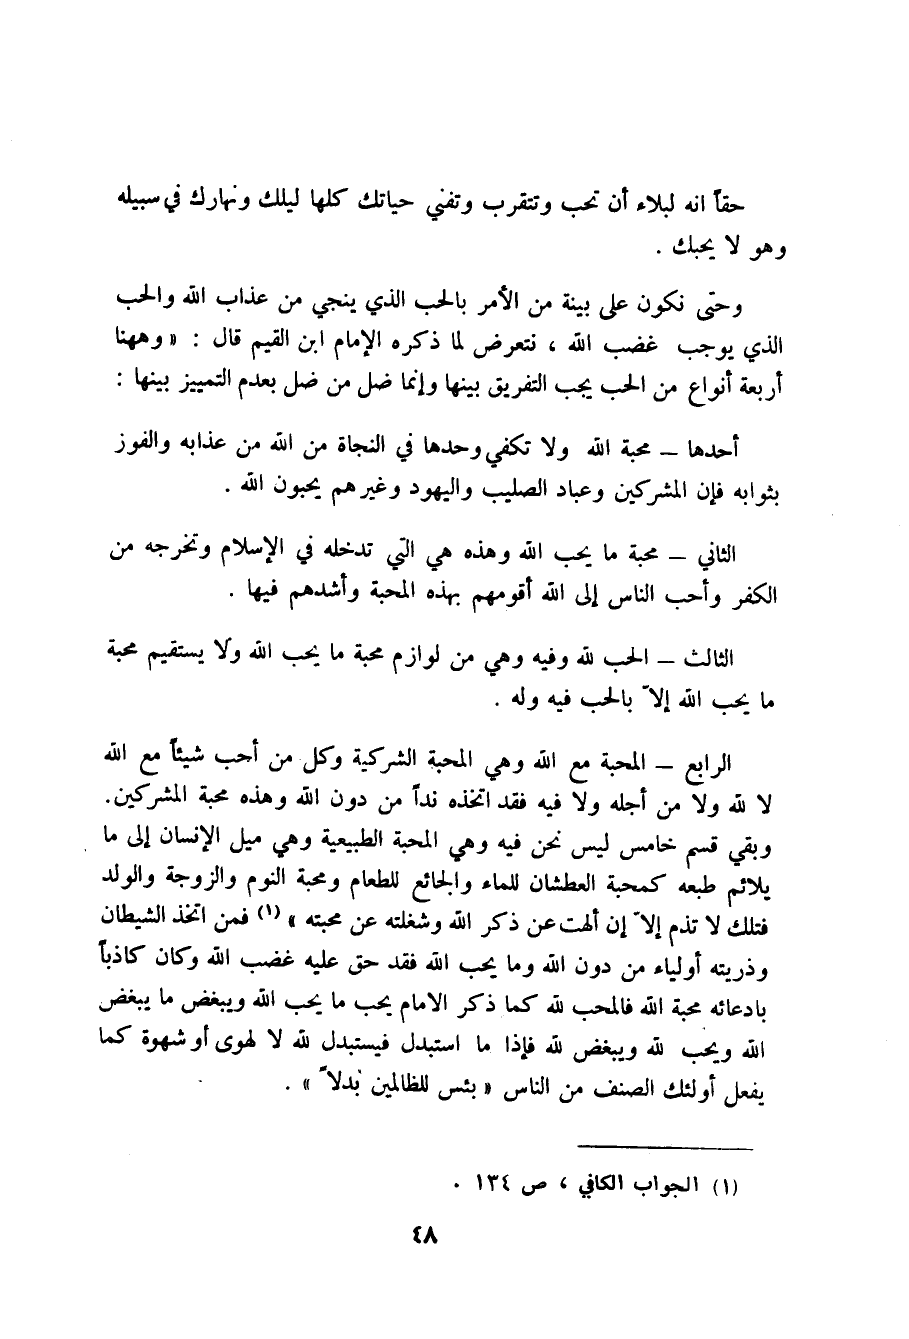 حقاً انه لبلاء أن تحب وتتقرب وتفني حياتك كلها ليلك ونهارك في سبيله
وهو لا يحبك .
وحتى نكون على بينة من الأمر بالحب الذي ينجي من عذاب الله والحب
الذي يوجب غضب الله ، نتعرض لما ذكره الإمام ابن القيم قال : « وههنا
أربعة أنواع من الحب يجب التفريق بينها وإنما ضل من ضل بعدم التمييز بينها :
أحدها – محبة الله ولا تكفي وحدها في النجاة من الله من عذابه والفوز
بثوابه فإن المشركين وعباد الصليب واليهود وغيرهم يحبون الله .
الثاني – محبة ما يحب الله وهذه هي التي تدخله في الإسلام وتخرجه من
الكفر وأحب الناس إلى الله أقومهم بهذه المحبة وأشدهم فيها .
الثالث – الحب لله وفيه وهي من لوازم محبة ما يحب الله ولا يستقيم محبة
ما يحب الله إلاّ بالحب فيه وله .
الرابع – المحبة مع الله وهي المحبة الشركية وكل من أحب شيئاً مع الله
لا لله ولا من أجله ولا فيه فقد اتخذه نداً من دون الله وهذه محبة المشركين.
وبقي قسم خامس ليس نحن فيه وهي المحبة الطبيعية وهي ميل الإنسان إلى ما
يلائم طبعه كمحبة العطشان للماء والجائع للطعام ومحبة النوم والزوجة والولد
فتلك لا تذم إلاّ إن ألهت عن ذكر الله وشغلته عن محبته » (١) فمن اتخذ الشيطان
وذريته أولياء من دون الله وما يحب الله فقد حق عليه غضب الله وكان كاذباً
بادعائه محبة الله فالمحب لله كما ذكر الامام يحب ما يحب الله ويبغض ما يبغض
الله ويحب لله ويبغض لله فإذا ما استبدل فيستبدل لله لا لهوى أو شهوة كما
يفعل أولئك الصنف من الناس « بئس للظالمين بدلاً » .
(١) الجواب الكافي ، ص ١٣٤ .
٤٨